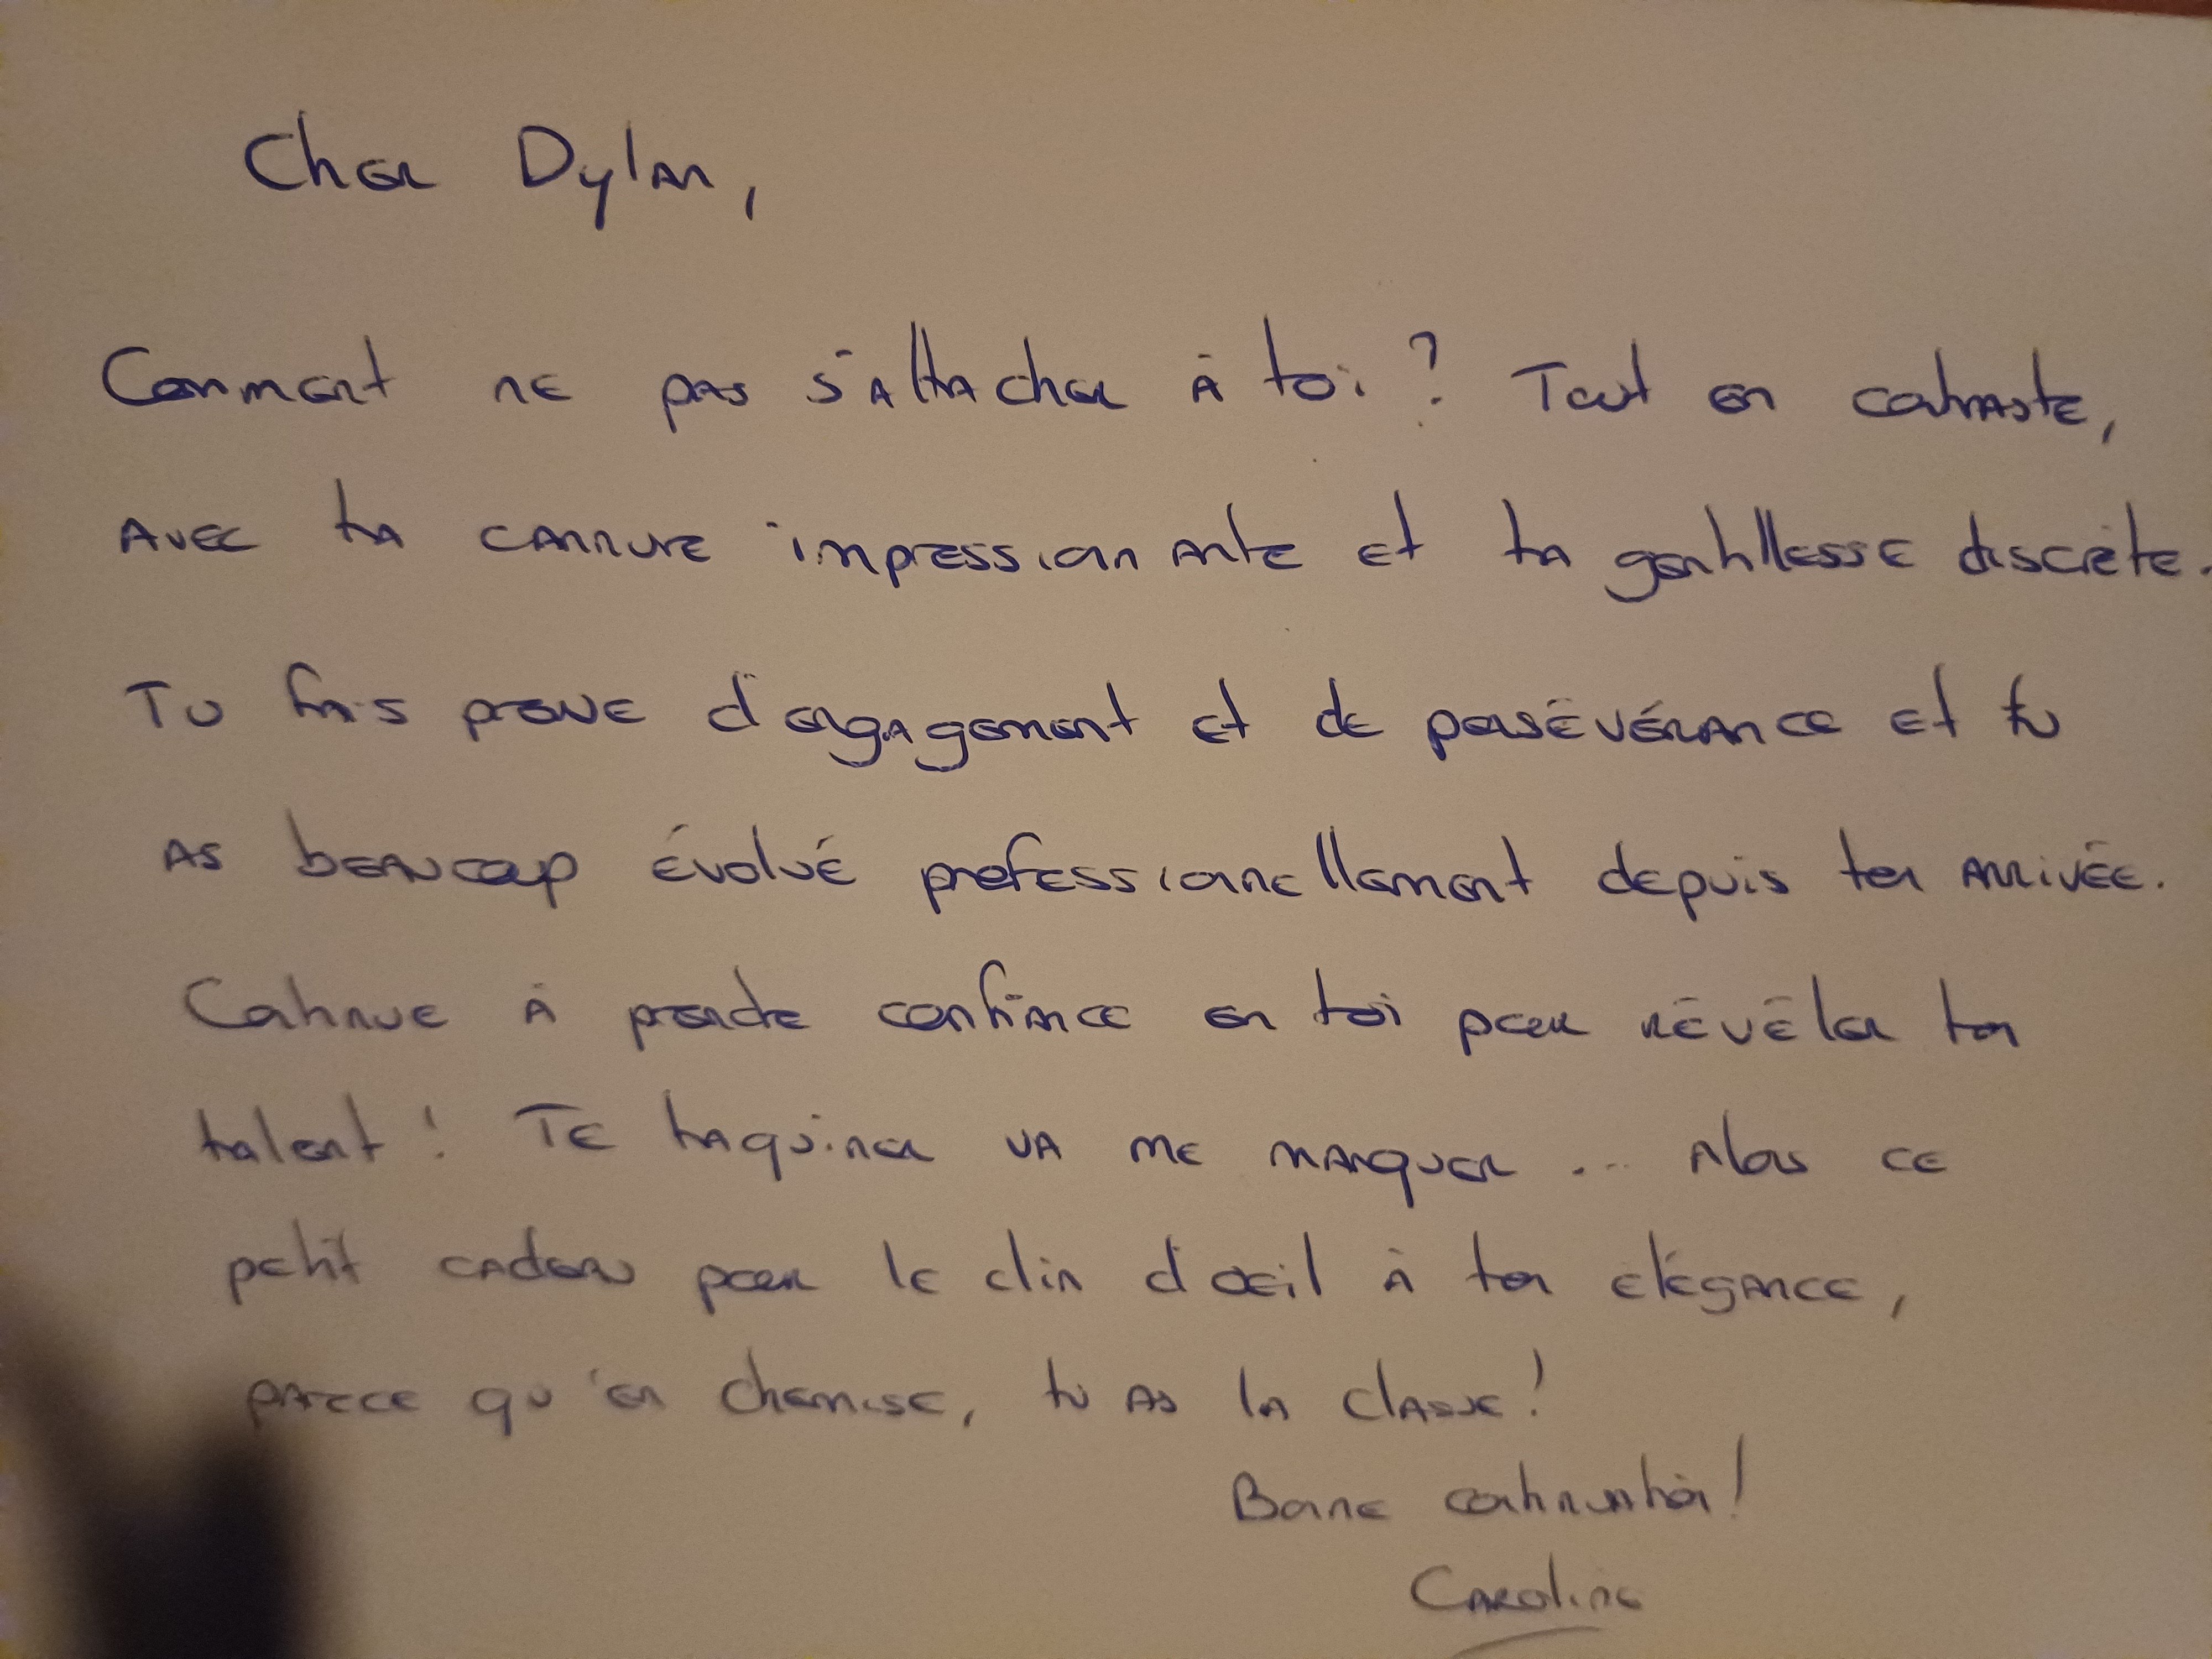 Cher Dylan,
Comment ne pas s'attacher à toi ? Tout en contraste,
avec ta carrure impressionnante et ta gentillesse discrète.
Tu fais preuve d'engagement et de persévérance et tu
as beaucoup évolué professionnellement depuis ton arrivée.
Continue à prendre confiance en toi pour révéler ton
talent ! Te taquiner va me manquer ... Alors ce
petit cadeau pour le clin d'oeil à ton élégance,
parce qu'en chemise, tu as la classe !
Bonne continuation !
Caroline